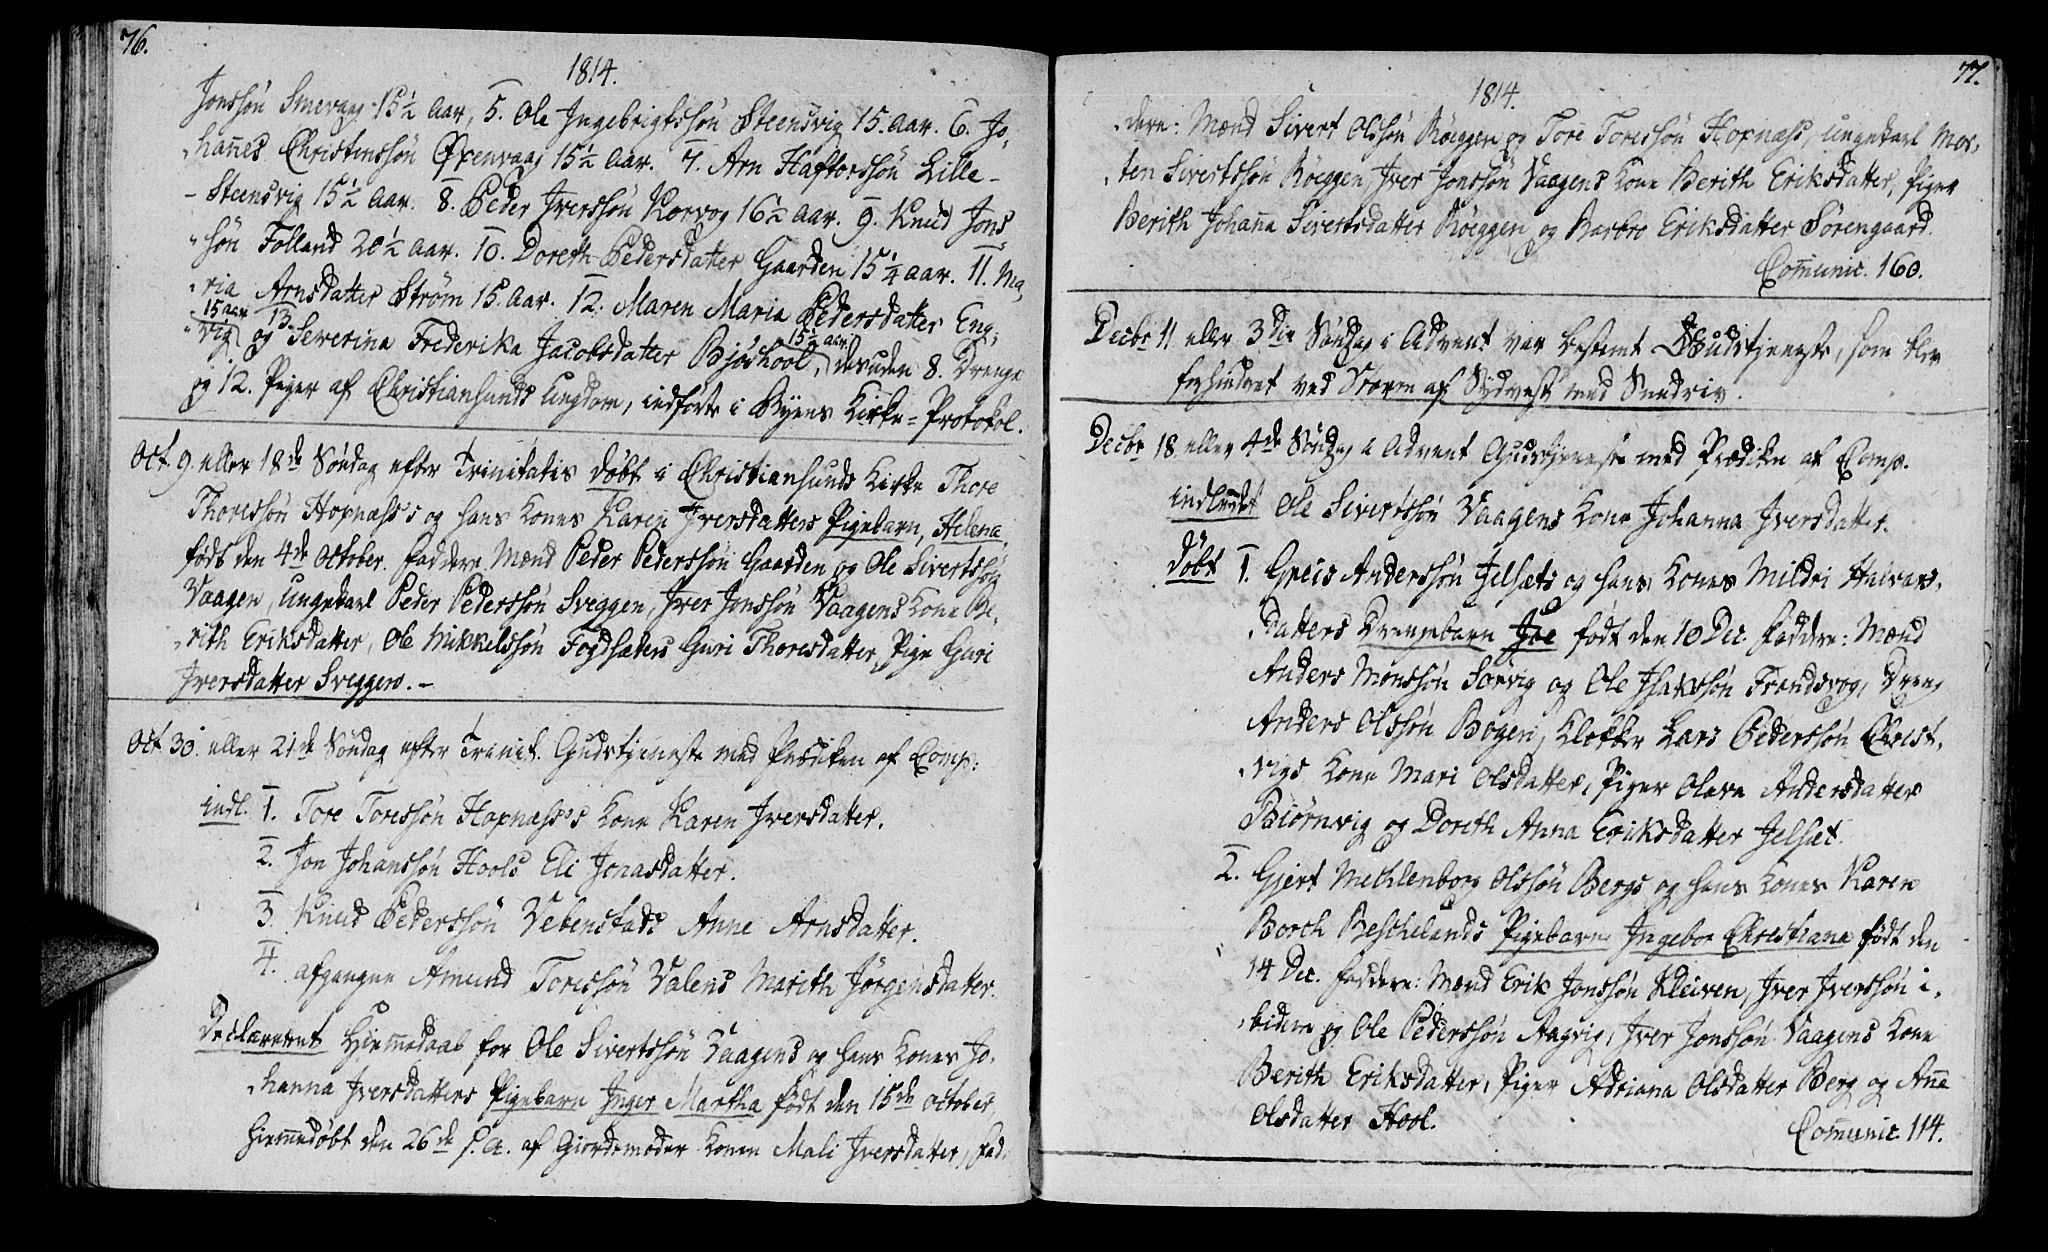 76.
1814.
Jonssøn Smevaag 15½ Aar, 5. Ole Ingebrigtssøn Steensvig 15. Aar. 6. Jo,
hañes Christenssøn Øxenvaag 15½ Aar. 7. Arn Haftorssøn Lille-
-Steensvig 15½ Aar. 8. Peder Iverssøn Korvog 16½ Aar. 9. Knud Jons,
søn Folland 20½ Aar. 10. Doreth Pedersdatter Gaarden 15¼ Aar. 11. Ma,
ria Arnsdatter Strøm 15. Aar. 12. Maren Maria Pedersdatter Eng,
15 aar 13. 15½ aar
vig og Severina Frederika Jacobsdatter Bjøshool, desuden 8. Drenge
og 12. Piger af Christiansunds Ungdom, indførte i Byens Kirke-Protokol.
Oct. 9. eller 18de Søndag efter Trinitatis døbt i Christiansunds Kirke Thore
Thoressøn Hopnæss's og hans Kones Karen Iversdatters Pigebarn, Helena
født den 4de October. Faddere: Mænd Peder Pederssøn Gaarden og Ole Sivertssøn
Vaagen, Ungekarl Peder Pederssøn Sveggen, Iver Jonssøn Vaagens Kone Be,
rith Eriksdatter, Ole Mikkelssøn Fogdsæters Guri Thoresdatter, Pige Guri
Iversdatter Sveggen.-
Oct. 30. eller 21de Søndag efter Trinit. Gudstjeneste med Prædiken af Comp:
indl. 1. Tore Toressøn Hopnæss's Kone Karen Iversdatter.
2. Jon Johanssøn Hools Eli Jonasdatter.
3. Knud Pederssøn Vebenstads Anne Arnsdatter.
4. afgangne Amund Toressøn Valens Marith Jørgensdatter.
Declareret Hjemmedaab for Ole Sivertssøn Vaagens og hans Kones Jo,
hanna Iversdatters Pigebarn Inger Martha født den 15de October,
hiemmedøbt den 26de s. A. af Giordemoder Konen Mali Iversdatter, Fad,
77.
1814.
dere: Mænd Sivert Olssøn Røeggen og Tore Toressøn Hopnæss, Ungekarl Mor,
ten Sivertssøn Røeggen, Iver Jonssøn Vaagens Kone Berith Eriksdatter, Piger
Berith Johaña Sivertsdatter Røeggen og Barbro Eriksdatter Sørengaard.
Com̃unic. 160.
Decbr 11 eller 3die Søndag i Advent var bestemt Gudstjeneste, som blev
forhindret ved Storm af Sydvest med Sneedriv.
Decbr 18 eller 4de Søndag i Advent Gudstjeneste med Prædiken af Comp.
indledet Ole Sivertssøn Vaagens Kone Johanna Iversdatter.
Døbt 1. Greis Anderssøn Jelsæts og hans Kones Mildri Halvars,
datters Drengebarn Joe født den 10 Dec. Faddere: Mænd
Anders Monssøn Sørvig og Ole Isakssøn Frendsvog, Dreng
Anders Olssøn Bogen, Klokker Lars Pederssøn Christ,
vigs Kone Mari Olsdatter, Piger Olava Andersdatter
Biørnvig og Doreth Anna Eriksdatter Jelsæt.
2. Gjert Mechlenborg Olssøn Bergs og hans Kones Karen
Borch Beschelands Pigebarn Ingebor Christiana født den
14 Dec. Faddere: Mænd Erik Jonssøn Kleiven, Iver Iverssøn i,
bidem og Ole Pederssøn Aagvig, Iver Jonssøn Vaagens Kone
Berith Eriksdatter, Piger Adriana Olsdatter Berg og Aña
Olsdatter Hool.
Com̃unic. 114.